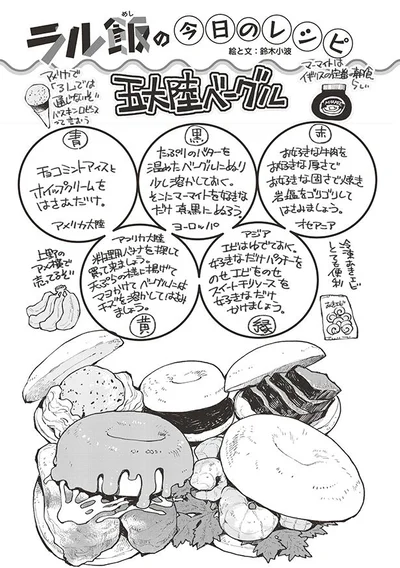 ラル飯の今日のレシピ
めし
絵と文:鈴木小波
五大陸ベーグル
アメリカで
「31」では
通じないぞ!
バスキンロビンス
って言おう
マーマイトは
イギリスの定番の朝食
らしい
青
チョコミントアイスと
ホイップクリームを
はさむだけ。
アメリカ大陸
黒
たっぷりのバターを
温めたベーグルにぬり
少し溶かしておく。
そこにマーマイトを好きな
だけ真っ黒にぬろう。
ヨーロッパ
赤
お好きな牛肉を
お好きな厚さで
お好きな固さで焼き
岩塩をゴリゴリして
はさみましょう。
オセアニア
上野の
アメ横で
売ってるぞ!
アメリカ大陸
料理用バナナを探して
買って来ましょう。
天ぷらの様に揚げて
マヨかけてベーグルにはさみ
チーズを溶かして
ましょう。
黄
アジア
エビはゆでておく。
お好きなだけパクチーを
のせ エビをのせ
スイートチリソースを
お好きなだけ
かけましょう。
緑
冷凍むきエビ
とても便利